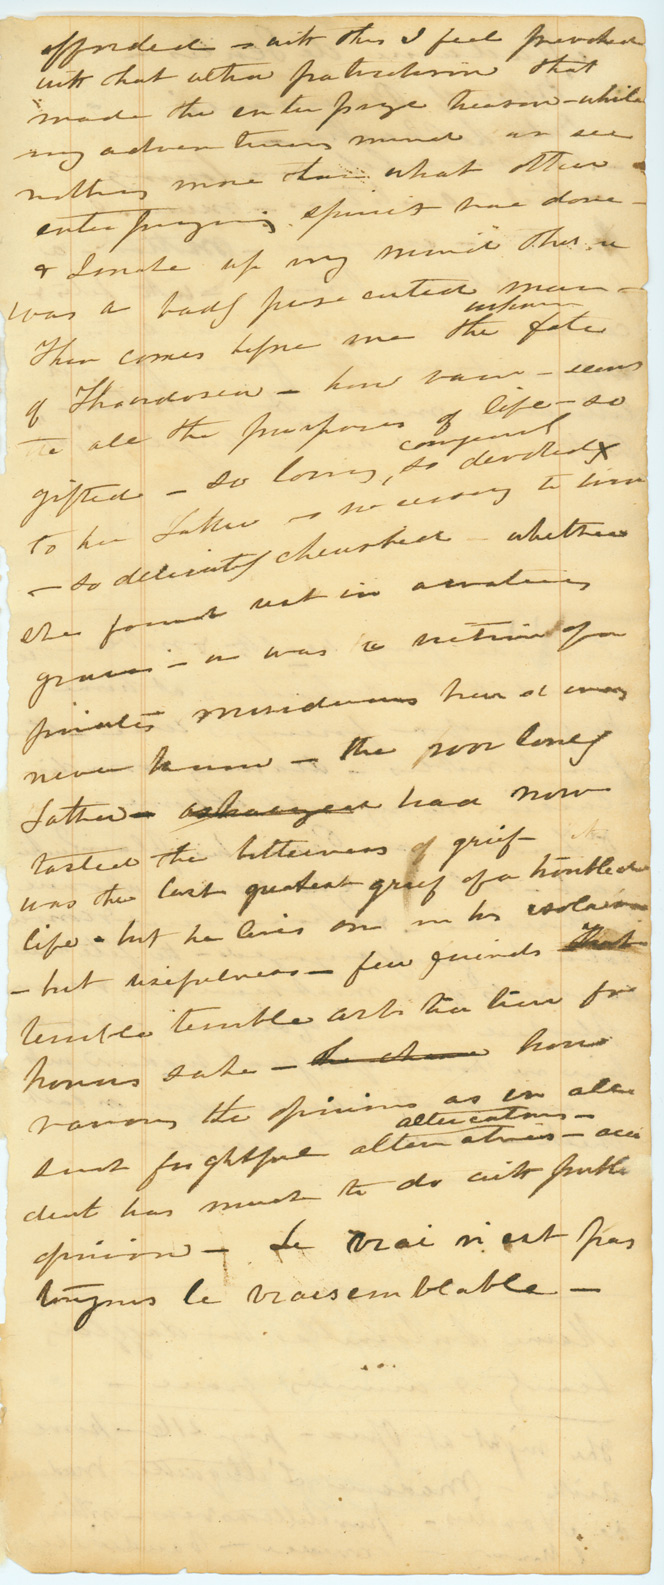 afforded – with this I feel provoked
with that ultra patriotism that
made the enterprize treason – while
my adventurous mind can see
nothing more than what other
enterprizing spirits have done –
& I make up my mind this
was a badly persecuted man –
Then comes before me the unknown fate
of Theodosia – how vain – seems
to all the purposes of life – so
gifted – so lovely, so congenial so devoted
to her father so necessary to him
– so delicately cherished – whether
she found rest in a watery
grave – or was a victim of a
pirates murderous hand
never known – the poor lonely
father – had now
tasted the bitterness of grief – it
was the last greatest grief of a troubled
life – but he lives on in his isolation
– but usefulness – few friends that
terrible terrible arbitration for
honors sake – how
various the opinions as in all
such frightful altercations alternatives – acci
dent has much to do with public
opinion – Le vrai n'est pas
toujours le vraisemblable –